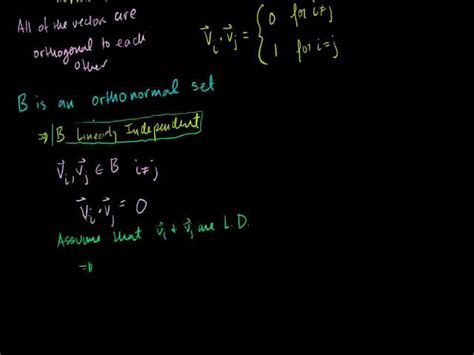 All of the vectors are
orthogonal to each
other
v⃗ᵢ · v⃗ⱼ = { 0 for i≠j
1 for i=j
B is an orthonormal set
⇒ B Linearly Independent
v⃗ᵢ, v⃗ⱼ ∈ B i≠j
v⃗ᵢ · v⃗ⱼ = 0
Assume that v⃗ᵢ + v⃗ⱼ are L.D.